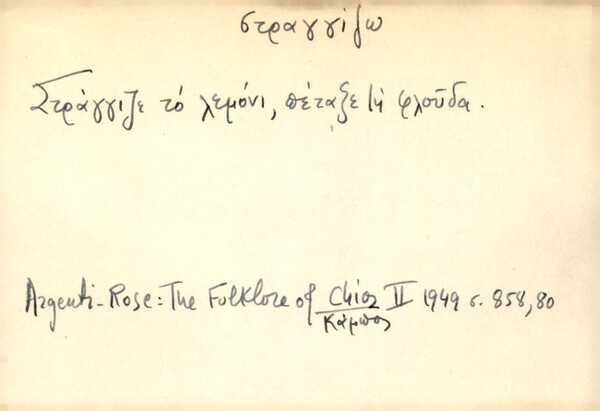 στραγγίζω
Στράγγιζε τό λεμόνι, πέταξε τή φλοῦδα.
Argenti-Rose: The Folklore of Chios II 1949 σ. 858,80
Κάμπος